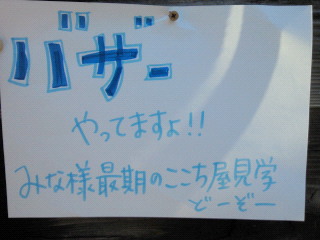 バザー
やってますよ!!
みな様最期のここち屋見学
どーぞー